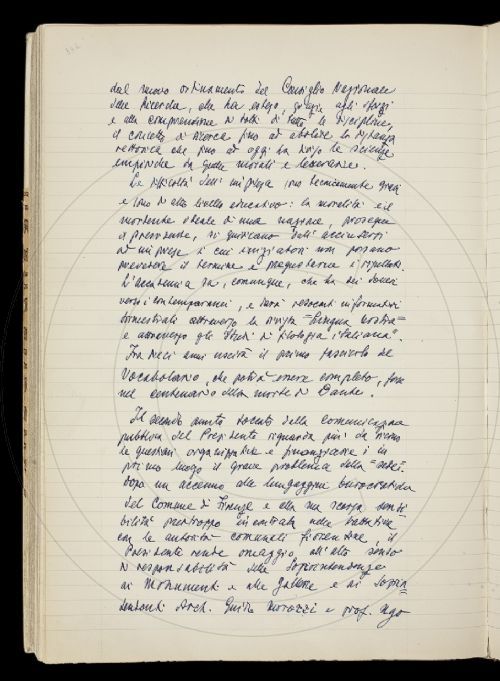 dal nuovo ordinamento del Consiglio Nazionale
delle Ricerche, che ha esteso, grazie agli sforzi
e alla comprensione di tutti di tutte le discipline,
il concetto di ricerca fino ad abolire la distanza
retorica che fino ad oggi ha diviso le scienze
empiriche da quelle morali e letterarie.
Le difficoltà dell'impresa sono tecnicamente gravi
e sono di alto livello educativo: la moralità e il
mordente ideale di una nazione, prosegue
il presidente, si giudicano dall'accingersi
ad imprese i cui iniziatori non possano
prevedere il termine e pregustarne i risultati.
L'accademia sa, comunque, che ha dei doveri
verso i contemporanei, e darà resoconti informativi
trimestrali attraverso la rivista "Lingua nostra"
e attraverso gli "Studi di filologia italiana".
Fra dieci anni uscirà il primo fascicolo del
Vocabolario, che potrà essere completo, forse
nel centenario della morte di Dante.
Il secondo punto toccato dalla comunicazione
pubblica del Presidente riguarda più da vicino
le questioni organizzative e finanziarie: in
primo luogo il grave problema della "sede".
Dopo un accenno alle lungaggini burocratiche
del Comune di Firenze e alla sua scarsa sensi
bilità purtroppo incontrata nelle trattative
con le autorità comunali fiorentine, il
Presidente rende omaggio all'alto senso
di responsabilità della Soprintendenza
ai Monumenti e alle Gallerie e ai Soprin
tendenti Arch. Guido Morozzi e prof. Ugo